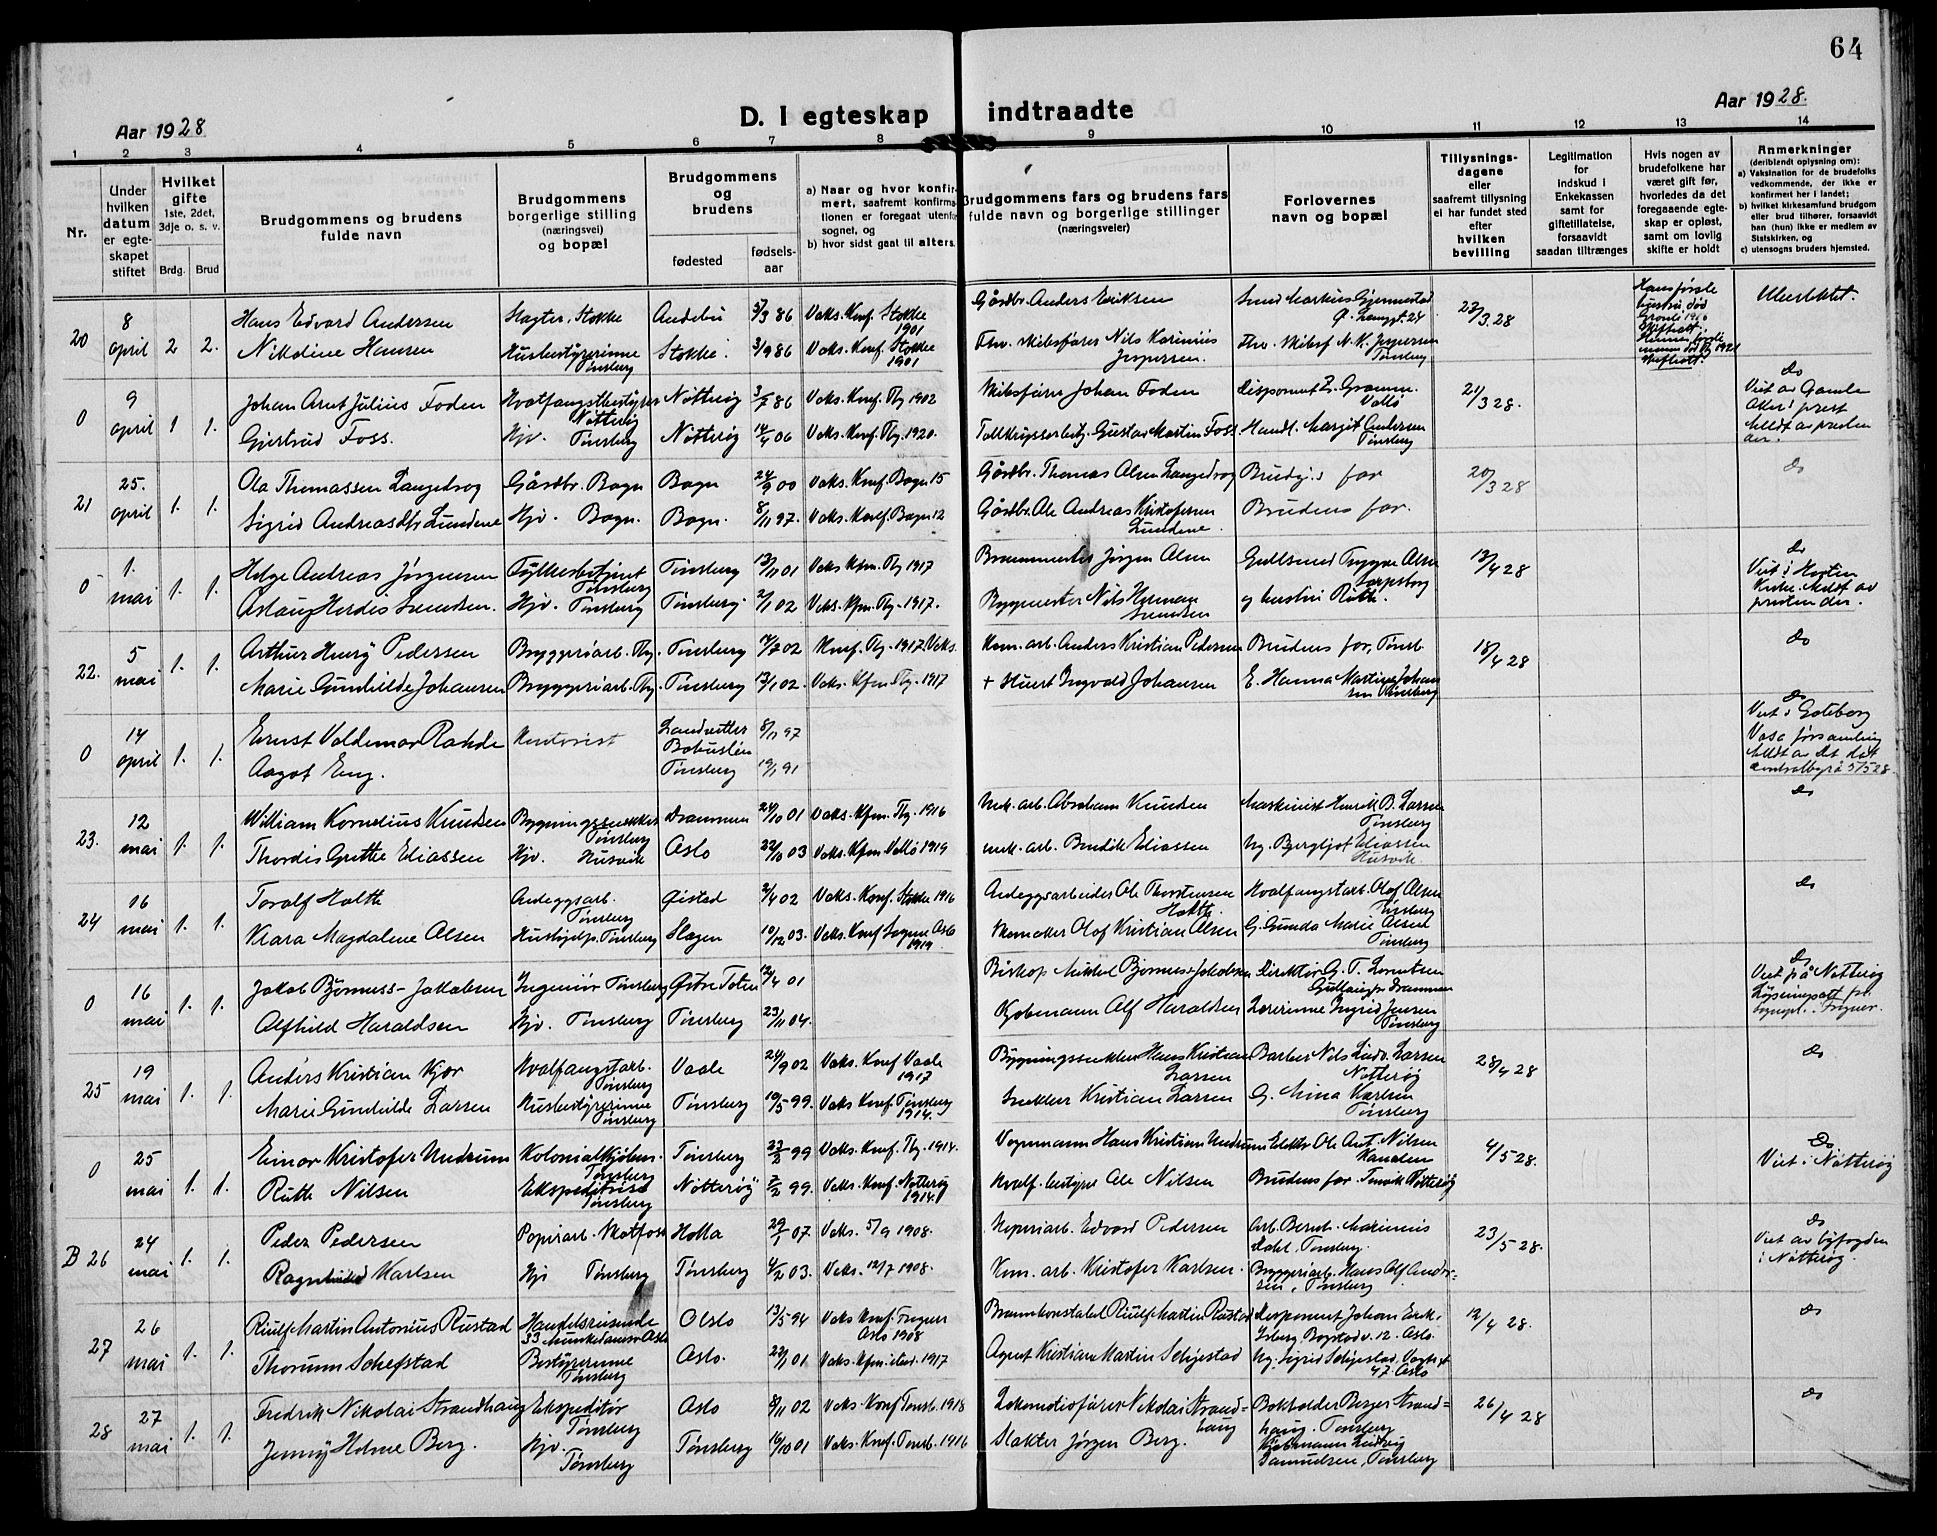 64
Aar 1928
D. I egteskap indtraadte
Aar 1928.
1 2 3 4 5 6 7 8 9 10 11 12 13 14
Nr.
Under hvilken datum er egteskapet stiftet
Hvilket gifte 1ste, 2det, 3dje o. s. v.
Brdg. Brud
Brudgommens og brudens fulde navn
Brudgommens borgerlige stilling (næringsvei) og bopæl
Brudgommens og brudens
fødested
fødsels-aar
a) Naar og hvor konfirmert, saafremt konfirmationen er foregaat utenfor sognet, og
b) hvor sidst gaat til alters.
Brudgommens fars og brudens fars fulde navn og borgerlige stillinger (næringsveier)
Forlovernes navn og bopæl
Tillysnings-dagene eller saafremt tillysning ei har fundet sted efter hvilken bevilling
Legitimation for indskud i Enkekassen samt for giftetillatelse, forsaavidt saadan tiltrænges
Hvis nogen av brudefolkene har været gift før, hvorledes da det foregaaende egteskap er opløst, samt om lovlig skifte er holdt
Anmerkninger (deriblandt oplysning om):
a) Vaksination for de brudefolks vedkommende, der ikke er konfirmert her i landet;
b) hvilket kirkesamfund brudgom eller brud tilhører, forsaavidt han (hun) ikke er medlem av Statskirken, og
c) utensogns bruders hjemsted.
20 8 april 2 2.
Hans Edvard Andersen Slagter, Stokke Andebu 5/3 86 Vaks. Konf. Stokke 1901 Gårdbr. Anders Eriksen 23/3.28
Nikoline Hansen Husbestyrerinne Tønsberg Stokke 3/9 86 Vaks. Konf. Stokke 1901 Fhv. skibsfører Nils Karinius Jespersen Fhv. skibsf. N. K. Jespersen Tønsberg
0 9 april 1 1.
Johan Arnt Julius Foden Hvalfangstbestyrer Nøtterøy Nøtterøy 3/7 86 Vaks. Konf. Tbg 1902 Skibsfører Johan Foden Disponent Gramm. Vallø 21/3 28. do
Gjertrud Foss. Hjv. Tønsberg Nøtterøy 14/4 06 Vaks. Konf. Tbg. 1920. Gustav Martin Foss. Handl. Margit Andersen Tønsberg
Viet av Gamle Aker's prest
21 25. april 1. 1.
Ola Thomassen Langedrog Gårdbr. Bagn Bagn 24/9 00 Vaks. Konf. Bagn 15 Gårdbr. Thomas Olsen Langedrog Brudg.s far 20/3 28 do
Sigrid Andreasdtr Lundene Hjv. Bagn. Bagn. 8/11 97. Vaks. Konf. Bagn 12 Gårdbr. Ole Andreas Kristofersen Lundene. Brudens far.
0 1. mai 1. 1.
Helge Andreas Jørgensen Fylkesbetjent Tønsberg Tønsberg 13/11 01 Vaks Kfm. Tbg 1917 Jørgen Olsen Gullsmed Trygve Olsen Sarpsborg 13/4 28 do
Aslaug Herdis Svendsen. Hjv. Tønsberg Tønsberg 2/1 02 Vaks. Kfm. Tbg. 1917. Byggmester Nils Herman Svendsen og hustru Ruth.
Viet i Horten Kirke. Meldt av presten der.
22. 5 mai 1. 1.
Arthur Henry Pedersen Bryggeriarb. Tbg. Tønsberg 02 Konf. Tbg. 1917. Vaks. Kom. arb. Anders Kristian Pedersen Brudens far, Tønsb. 18/4 28 do
Marie Gunhilde Johansen Bryggeriarb. Tbg. Tønsberg 13/1 02. Vaks. Kfm Tbg. 1917 + Stuert Ingvald Johansen E. Hanna Martine Johansen Tønsberg
0 14 april 1. 1.
Ernst Valdemar Rahde Kontorist Landvetter Bohuslén 8/11 97
Aagot Eng. Tønsberg 19/1 91
do Viet i Gøteborg Vasa församling
23. 12 mai 1. 1.
William Kornelius Knudsen Bygningssnekker Tønsberg Drammen 24/10 01 Vaks. Kfm. Tbg. 1916 Mek. arb. Abraham Knudsen Maskinist Henrik B. Larsen Tønsberg do
Thordis Grethe Eliassen Hjv. Husvik Oslo 22/10 03 Vaks. Kfm Vallø 1919 mek. arb. Bendik Eliassen Ug. Bergljot Eliassen Husvik
24 16 mai 1. 1.
Toralf Holth Anleggsarb. Tønsberg Øistad 2/4 02 Vaks. Konf. Stokke 1916 Anleggsarbeider Ole Thorstensen Holth. Hvalfangstarb. Olaf Olsen Tønsberg do
Klara Magdalene Olsen Hushjelp. Tønsberg Slagen 10/12 03. Vaks. Konf 1919 Skomaker Olof Kristian Olsen G. Gunda Marie Olsen Tønsberg
0 16 mai 1. 1.
Jakob Bjørness-Jakobsen Ingeniør Tønsberg Østre Toten 12/4 01 Biskop Mikkel Bjørness-Jakobsen Direktør G. T. Lorentsen Drammen do
Alfhild Haraldsen Hjv. Tønsberg Tønsberg 23/11 04. Kjøbmann Alf Haraldsen Lærerinne Ingrid Jensen Tønsberg
Viet på Nøtterøy
25 19 mai 1. 1.
Anders Kristian Kjær Hvalfangstarb. Tønsberg Vaale 24/9 02 Vaks. Konf Vaale 1917 Bygningssnekker Hans Kristian Larsen Barber Nils Ludv. Larsen Nøtterøy 28/4 28 do
Marie Gunhilde Larsen Husbestyrerinne Tønsberg Tønsberg 19/5 99. Vaks Konf. Tønsberg 1914. Snekker Kristian Larsen G. Mina Karlsen Tønsberg
0 25 mai 1. 1.
Einar Kristofer Undrum Kolonialkjøbm. Tønsberg Tønsberg 23/2 99 Vaks. Konf. Tbg. 1914. Vognmann Hans Kristian Undrum Elektr. Ole Ant. Nilsen Kanalen 4/5 28. do
Ruth Nilsen Ekspeditrise Tønsberg Nøtterøy 7/2 99. Vaks. Konf. Nøtterøy 1914. Hvalf. bestyrer Ole Nilsen Brudens far. Nøtterøy
Viet i Nøtterøy
B 26 24 mai 1. 1.
Peder Pedersen Papirarb. Skotfoss Holla 29/1 07. Vaks. 5/9 1908. Edvard Pedersen Arb. Bernh. Marinius Dahl, Tønsberg. 23/5 28. do
Ragnhild Karlsen Hjv Tønsberg Tønsberg 4/2 03. Vaks. 12/7 1908. Kom. arb. Kristofer Karlsen. Bryggeriarb. Hans Olf Andersen, Tønsberg
Viet av byfogden i Nøtterøy
27 26 mai 1. 1.
Riulf Martin Antonius Rustad Handelsreisende 33 Munkedamsv. Oslo Oslo 13/5 94 Vaks Konf. Oslo 1908 Brannkonstabel Riulf Martin Rustad Disponent Johan Erik. Isberg, Bogstadv. 12. Oslo. 12/4 28. do
Thorunn Solgestad Bestyrerinne Tønsberg Oslo. 22/1 01 Vaks. Kfm. 1917 Agent Kristian Martin Solgestad Ug. Sigrid Solgestad, 47 Oslo
28 27 mai 1. 1.
Fredrik Nikolai Strandhaug Ekspeditør Tønsberg Oslo 8/11 02 Vaks. Konf Tønsb. 1918 Lokomotivfører Nikolai Strandhaug Bokholder Birger Strandhaug. Tønsberg 26/4 28 do
Jenny Holme Berg. Hjv. Tønsberg Tønsberg 16/10 01 Vaks. Konf. Tønsb. 1916 Slakter Jørgen Berg. Kjøbmann Ludvig Samuelsen, Tønsberg